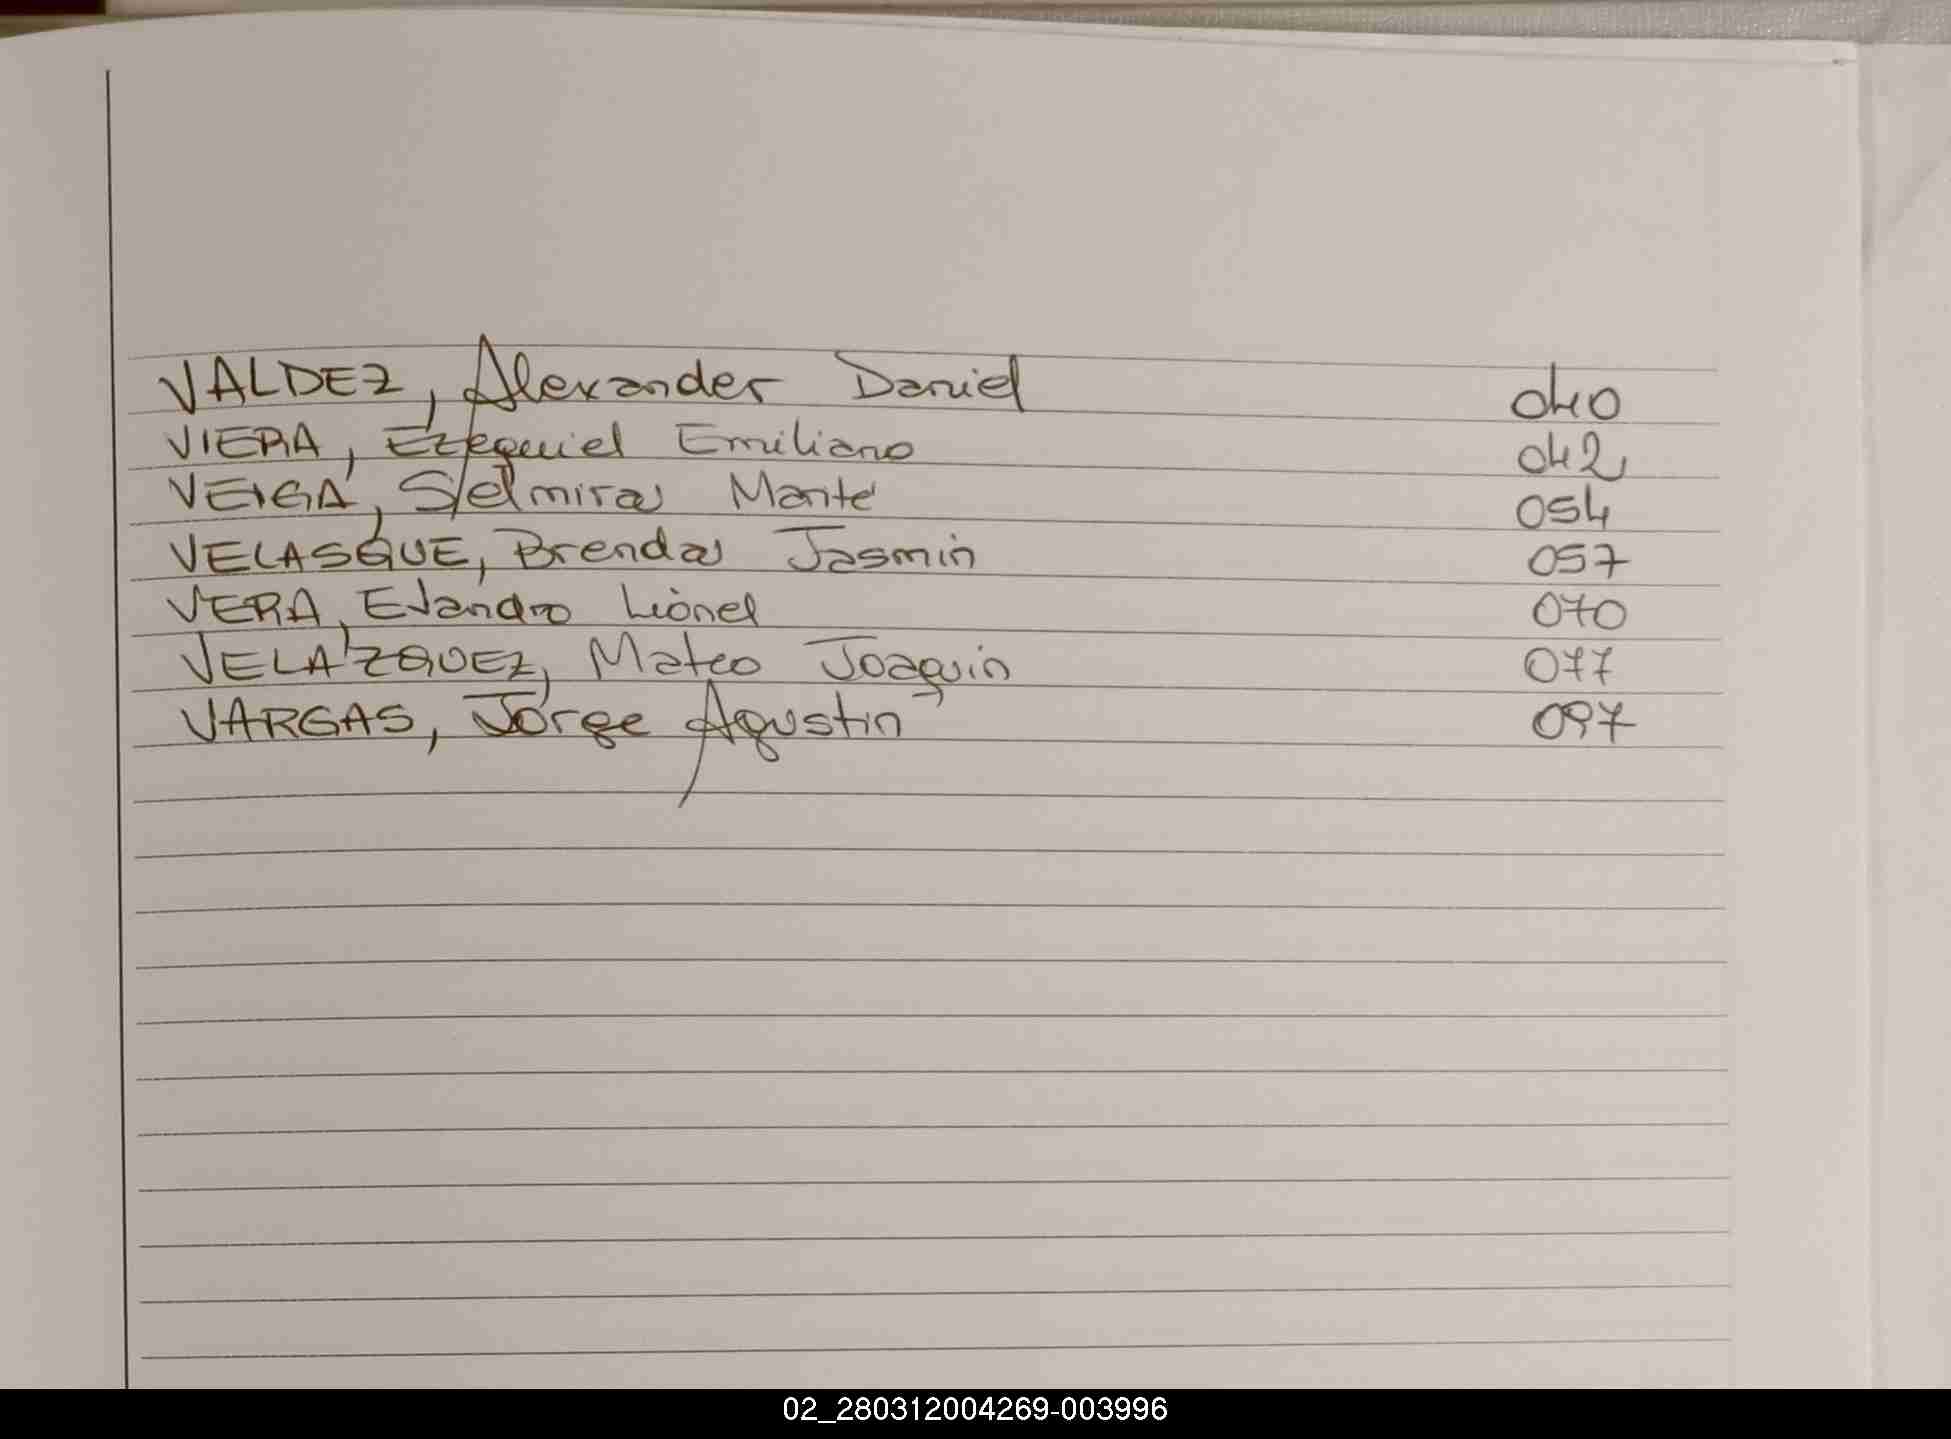 VALDEZ, Alexander Daniel 040
VIERA, Ezequiel Emiliano 042
VEIGA, Selmira Maite 054
VELASQUE, Brenda Jasmin 057
VERA, Evandro Lionel 070
VELÁZQUEZ, Mateo Joaquin 077
VARGAS, Jorge Agustin 097
02_280312004269-003996